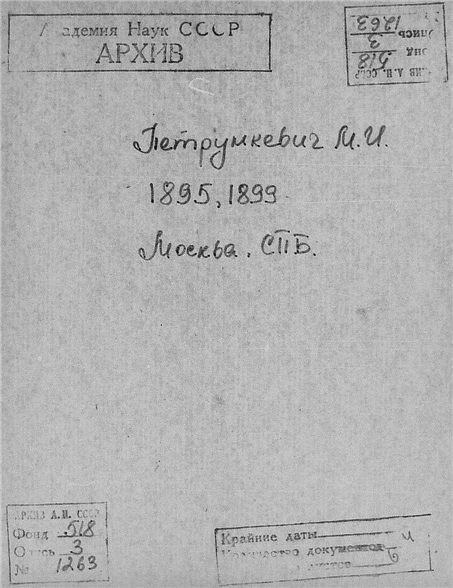 Академия Наук СССР
АРХИВ
АРХИВ А.Н. СССР
Фонд 518
Опись 3
1263
Петрункевич М.И.
1895, 1899
Москва. СПБ.
АРХИВ А.Н. СССР
Фонд 518
Опись 3
№ 1263
Крайние даты
Количество документов 4
листов 6